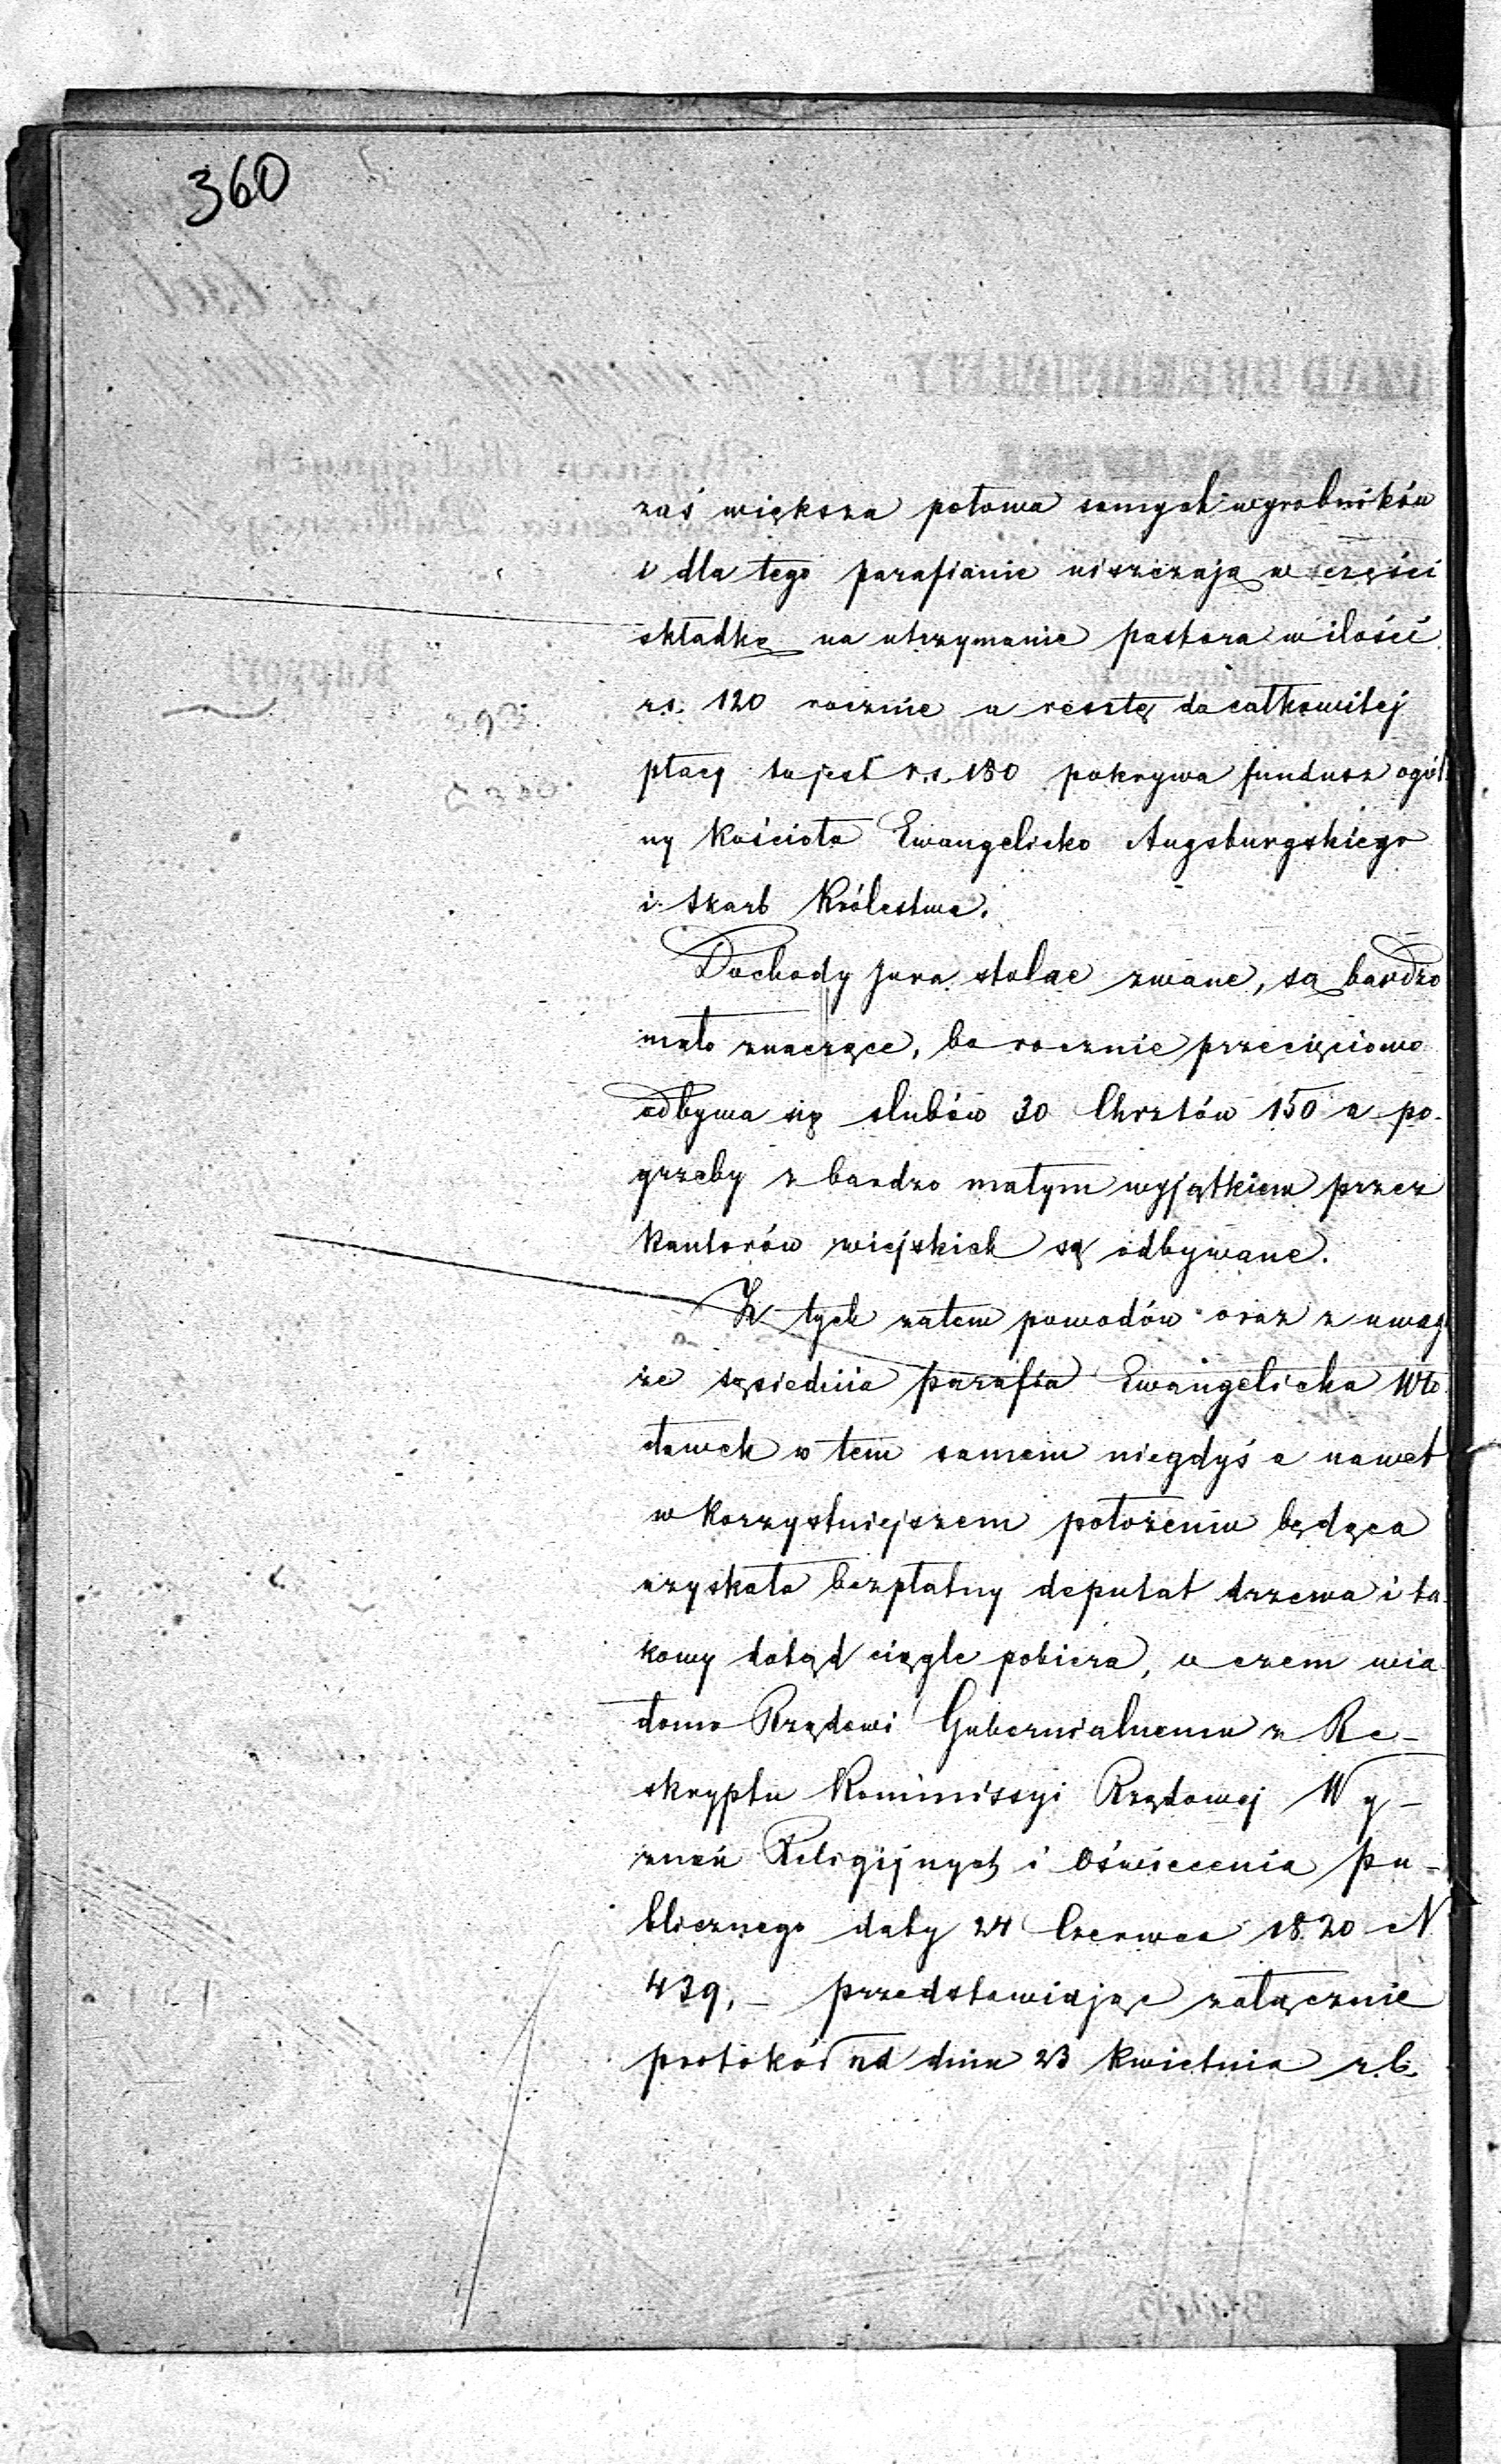 360
zaś większa połowa samych wyrobników
i dla tego parafianie uiszczają w części
składkę na utrzymanie pastora w ilości
rs. 120 rocznie a resztę do całkowitej
płacy to jest r.s. 180 pokrywa fundusz ogól
ny Kościoła Ewangelicko Augsburgskiego
i Skarb Królestwa.
Dochody jura stolae zwane, są bardzo
mało znaczące, bo rocznie przecięciowo
odbywa się ślubów 30 Chrztów 150 a po-
grzeby z bardzo małym wyjątkiem przez
Kantorów wiejskich są odbywane.
Z tych zatem powodów oraz z uwagi
że sąsiednia parafia Ewangelicka Wło-
cławek w tem samem niegdyś a nawet
w korzystniejszem położeniu będąca
uzyskała bezpłatny deputat drzewa i ta-
kowy dotąd ciągle pobiera, o czem wia
domo Rządowi Gubernialnemu z Re-
skryptu Kommissyi Rządowej Wy-
znań Religijnych i Oświecenia Pu-
blicznego daty 24 Czerwca 1820 N
439, - przedstawiając załącznie
protokół z d dnia 23 Kwietnia r.b.